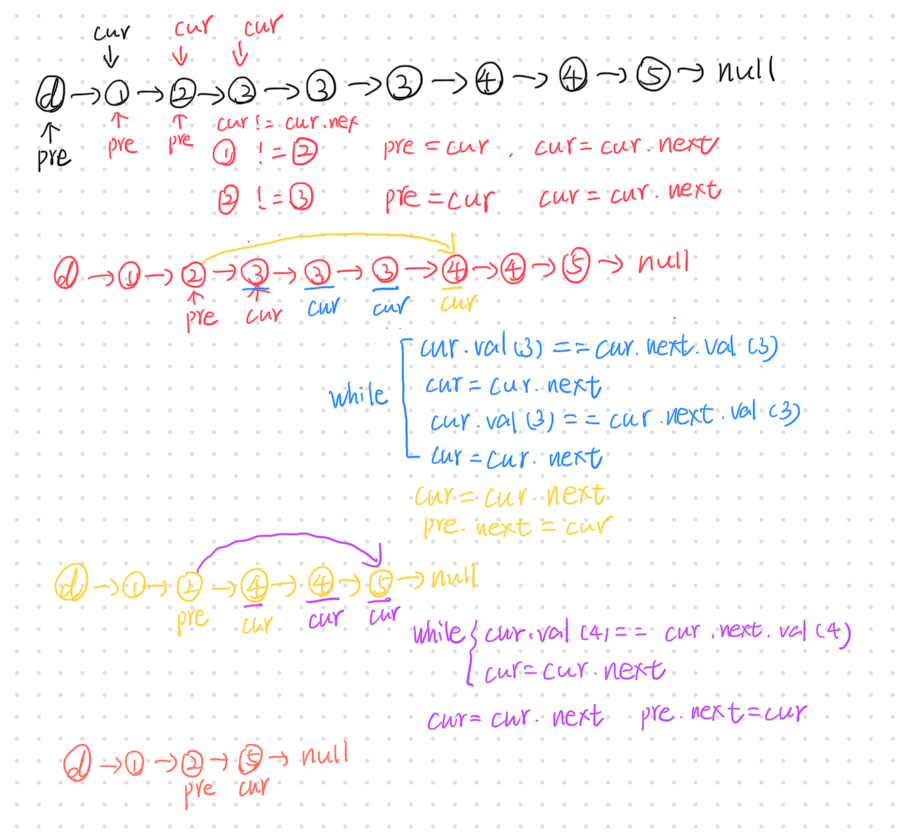 cur cur cur
d → 1 → 2 → 3 → 3 → 3 → 4 → 4 → 5 → null
pre pre pre cur != cur.nex
1 != 2 pre = cur , cur = cur.next
2 != 3 pre = cur cur = cur.next
d → 1 → 2 → 3 → 3 → 3 → 4 → 4 → 5 → null
pre cur cur cur cur
while
cur.val(3) == cur.next.val(3)
cur = cur.next
cur.val(3) == cur.next.val(3)
cur = cur.next
cur = cur.next
pre.next = cur
d → 1 → 2 → 4 → 4 → 5 → null
pre cur cur cur
while { cur.val(4) == cur.next.val(4)
cur = cur.next
cur = cur.next pre.next = cur
d → 1 → 2 → 5 → null
pre cur